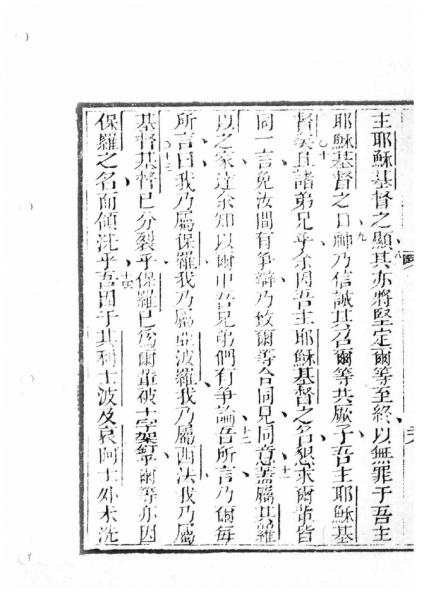 主耶穌基督之顯八其亦將堅定爾等至終以無罪于吾主
耶穌基督之日九神乃信誠其召爾等共厥子吾主耶穌基
督矣十且諸弟兄乎余因吾主耶穌基督之名懇求爾輩皆
同一言免汝間有爭辯乃致爾等合同見同意十一蓋屬其羅
以之家達余知以爾中吾兄弟們有爭論十二吾所言乃爾每
所言曰我乃屬保羅我乃屬亞波羅我乃屬西法我乃屬
基督十三基督已分裂乎保羅已爲爾輩被十字架釘乎爾等亦因
保羅之名而領洗乎十四吾因于其利士波及哀阿士外未洗